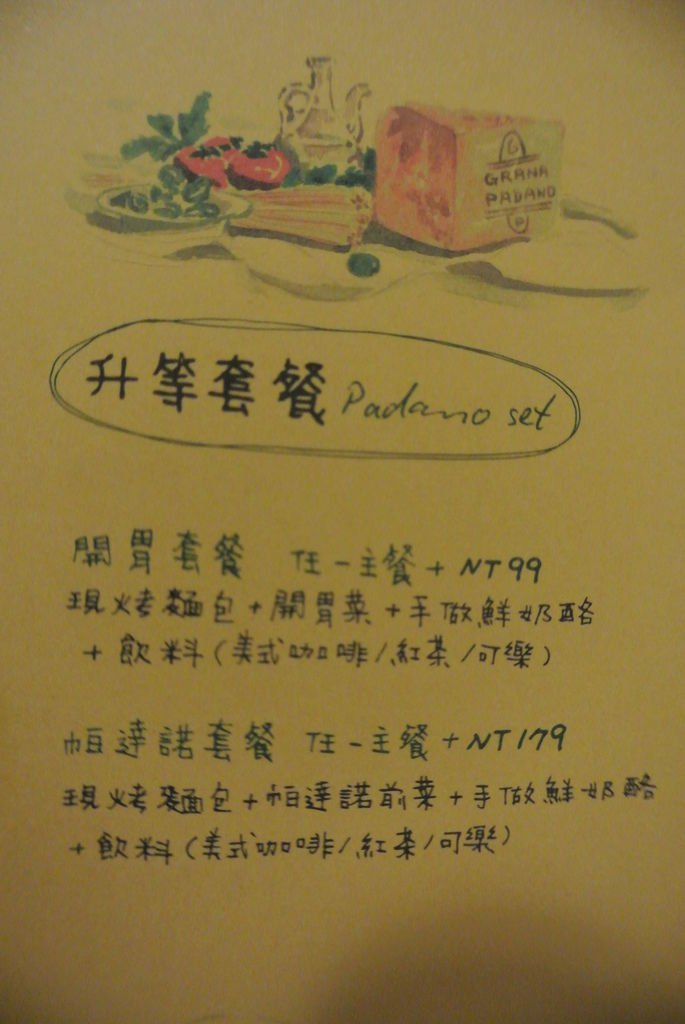 GRANA
PADANO
升等套餐 Padano set
開胃套餐 任一主餐 + NT 99
現烤麵包 + 開胃菜 + 手做鮮奶酪
+ 飲料 (美式咖啡/紅茶/可樂)
帕達諾套餐 任一主餐 + NT 179
現烤麵包 + 帕達諾前菜 + 手做鮮奶酪
+ 飲料 (美式咖啡/紅茶/可樂)